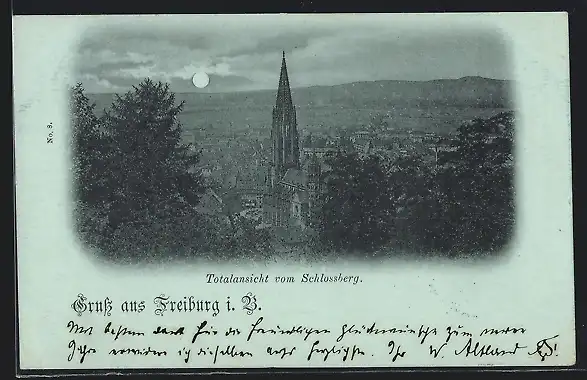 No. 8.
Totalansicht vom Schlossberg.
Gruß aus Freiburg i. B.
Mit bestem Dank für die freundlichen Glückwünsche zum neuen
Jahre erwidere ich dieselben aufs herzlichste. Ihr W. Altland